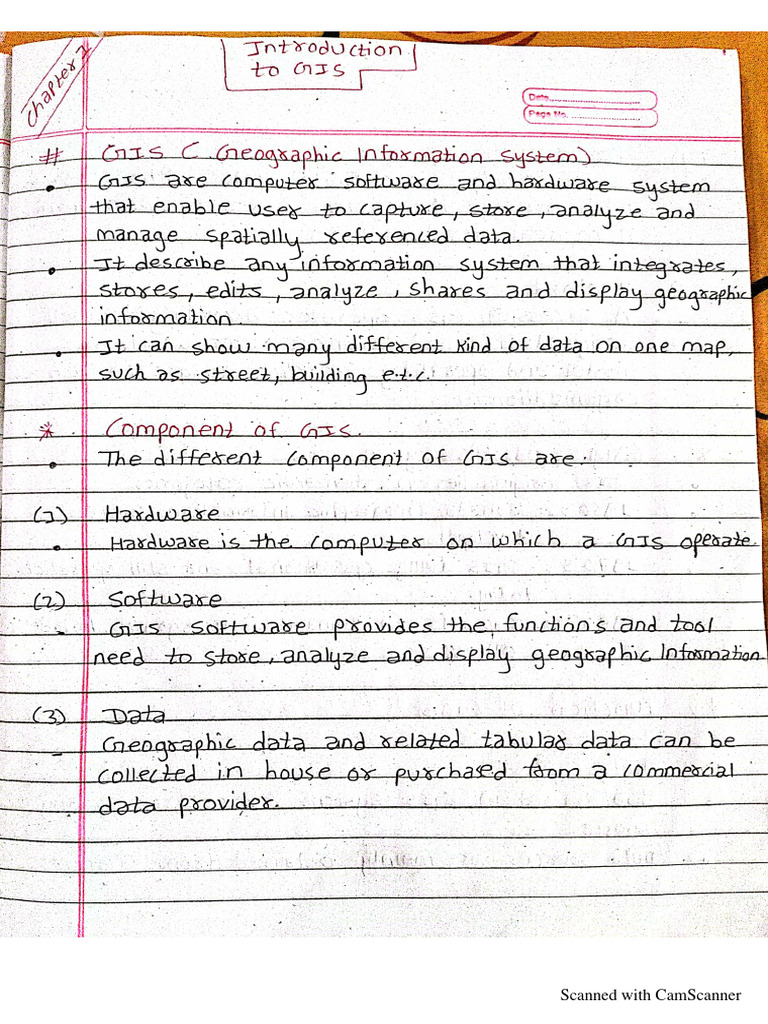 Chapter 1
Introduction
to GIS
Date
Page No.
# GIS ( Geographic Information System)
• GIS are computer software and hardware system
that enable user to capture, store, analyze and
manage spatially referenced data.
• It describe any information system that integrates,
stores, edits, analyze, shares and display geographic
information.
• It can show many different kind of data on one map,
such as street, building e.t.c.
* Component of GIS.
• The different component of GIS are.
(1) Hardware
• Hardware is the computer on which a GIS operate.
(2) Software
- GIS software provides the functions and tool
need to store, analyze and display geographic Information
(3) Data
- Geographic data and related tabular data can be
collected in house or purchased from a commercial
data provider.
Scanned with CamScanner